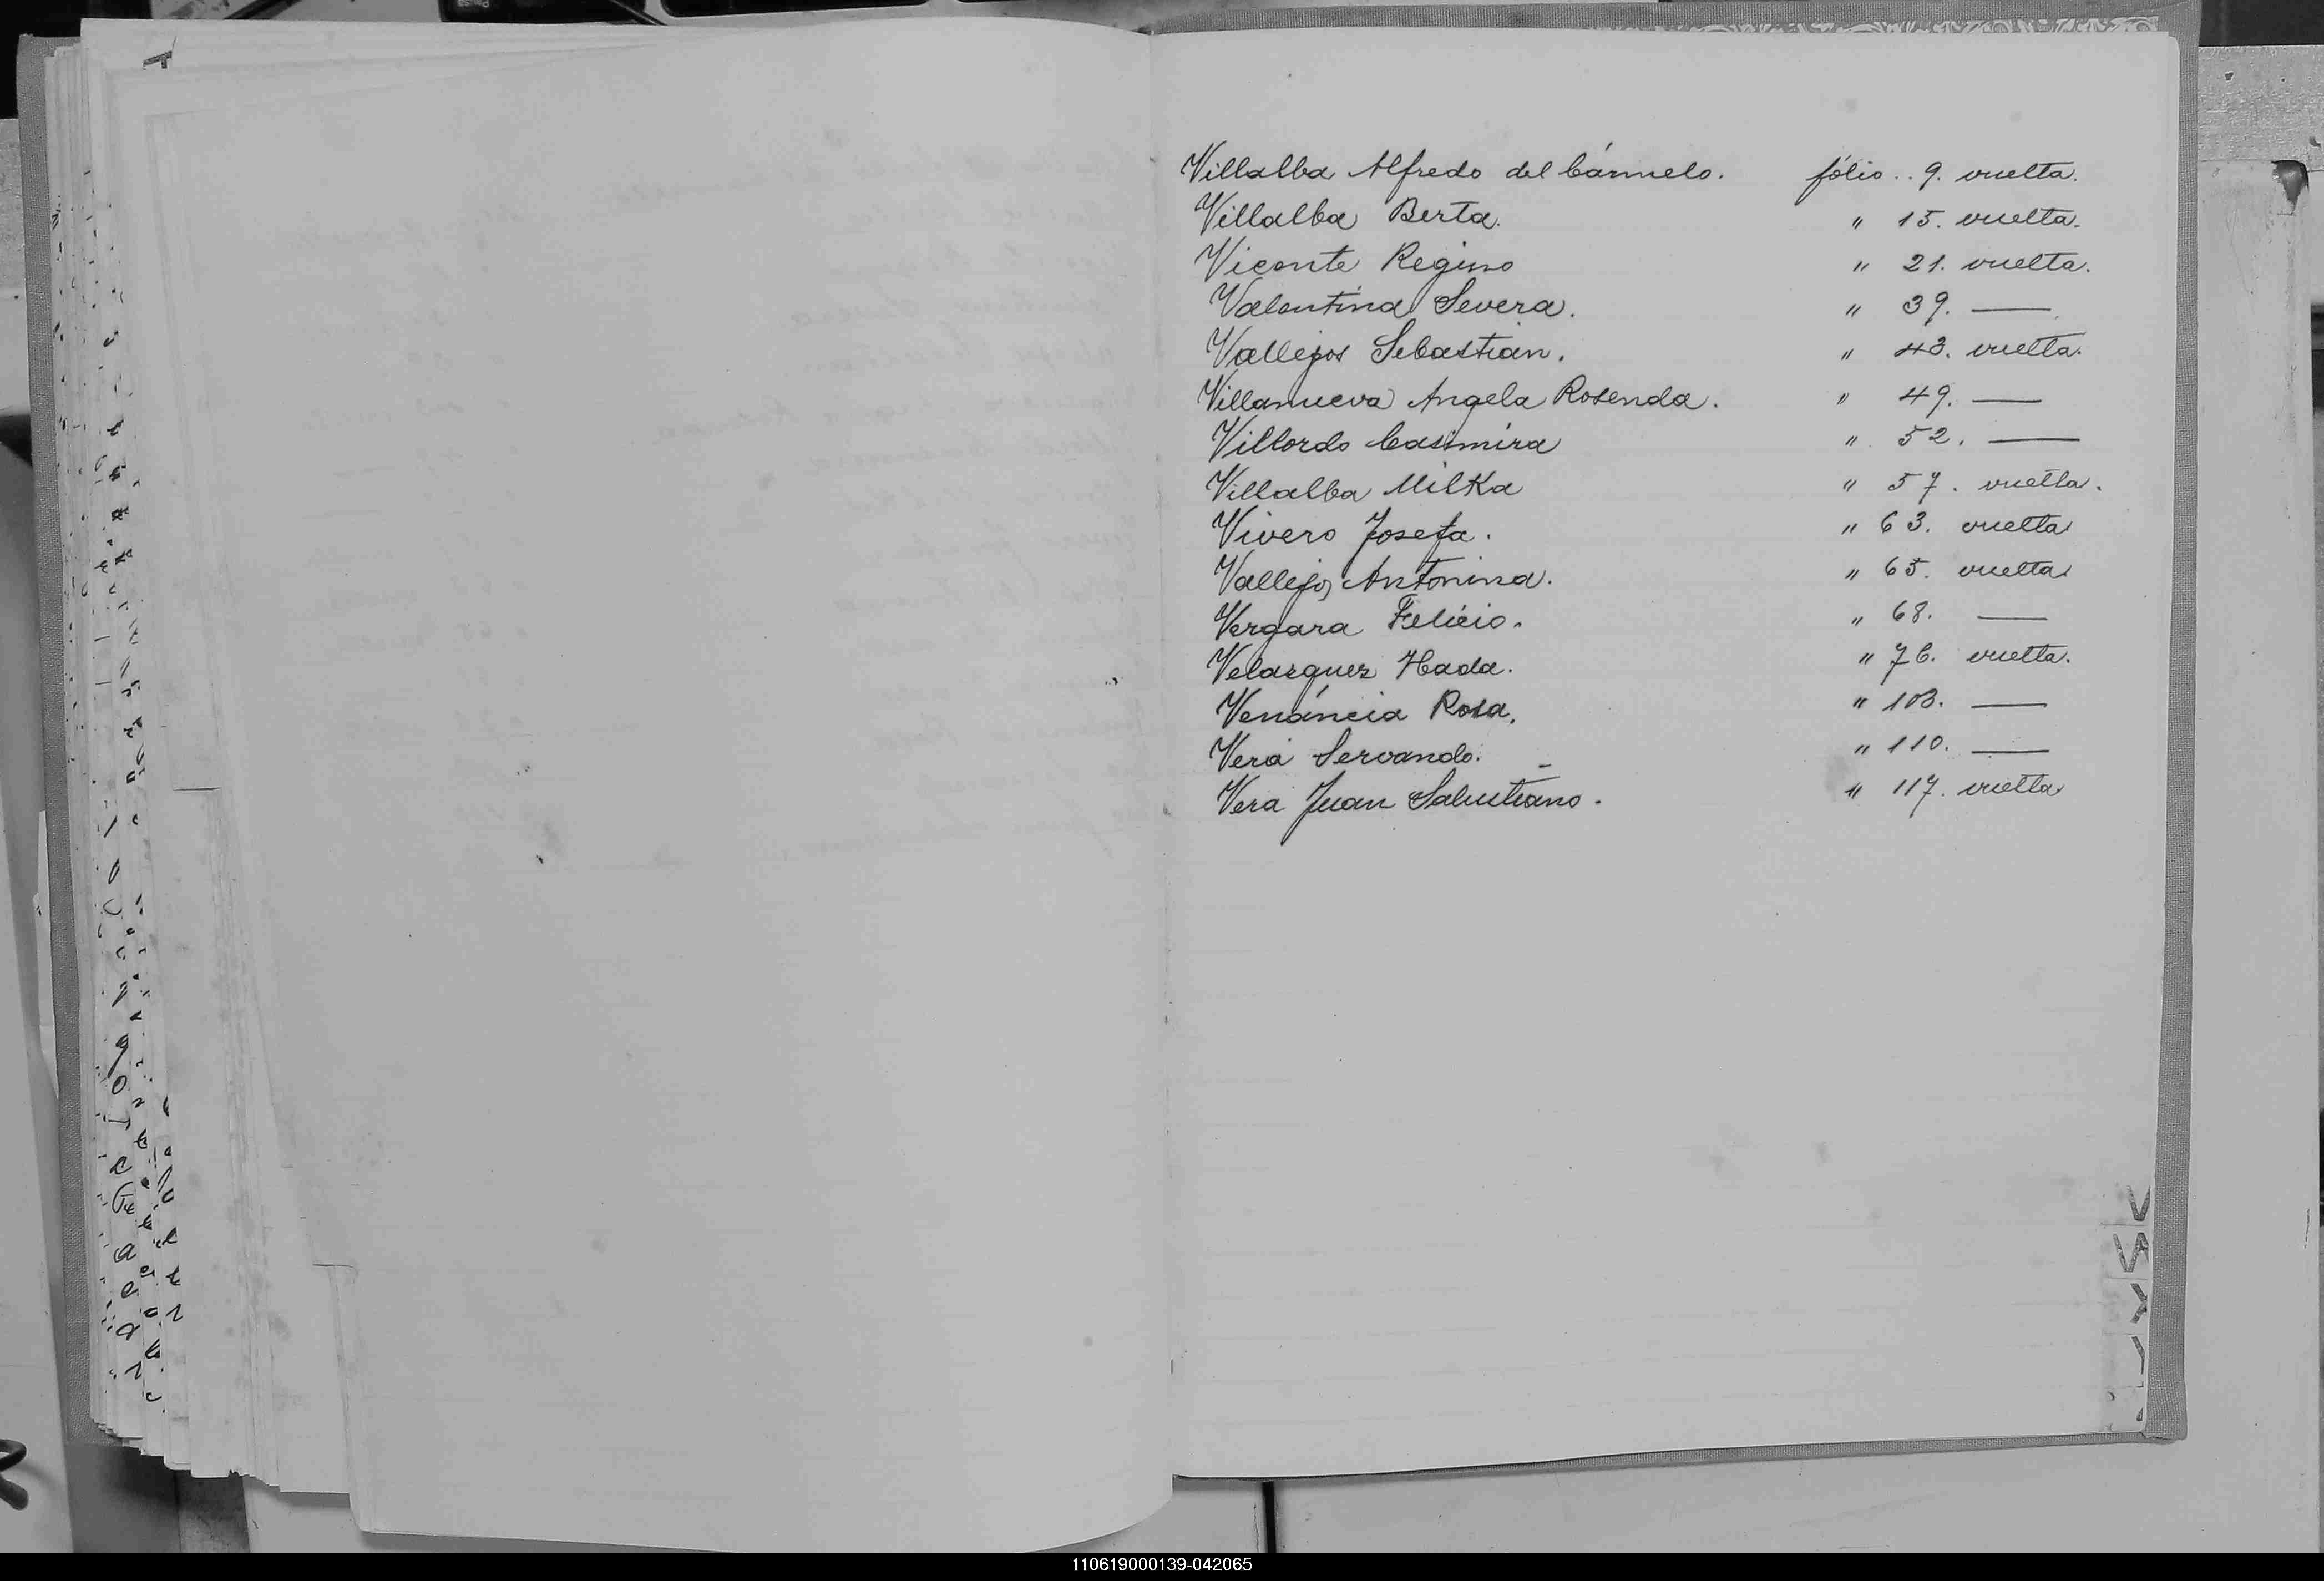 Villalba Alfredo del Cármelo. fólio . . 9. vuelta.
Villalba Berta. " 15. vuelta.
Viconte Regino " 21. vuelta.
Valentina Severa. " 39. —
Vallejos Sebastian. " 43. vuelta.
Villanueva Angela Rosenda. " 49. —
Villordo Casimira " 52. —
Villalba Milka " 57. vuelta.
Vivero Josefa. " 63. vuelta
Vallejos Antonina. " 65. vuelta
Vergara Felicio. " 68. —
Velazquez Hada. " 76. vuelta.
Venáncia Rosa. " 103. —
Vera Servando. " 110. —
Vera Juan Salustiano. " 117. vuelta
V
W
X
Y
110619000139-042065